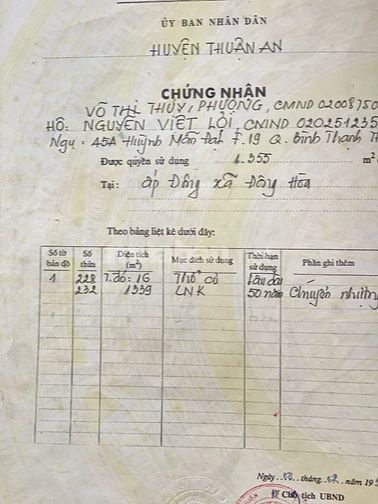 ỦY BAN NHÂN DÂN
HUYỆN THUẬN AN
CHỨNG NHẬN
VÕ THỊ THÚY PHƯỢNG, CMND 02008750
HỘ: NGUYỄN VIỆT LỢI, CMND 020251235
Ngụ: 45A Huỳnh Mẫn Đạt F.19 Q. Bình Thạnh
Được quyền sử dụng 1.355 m²
Tại: ấp Đông xã Đông Hòa
Theo bảng liệt kê dưới đây:
Số tờ bản đồ Số thửa Diện tích (m²) Mục đích sử dụng Thời hạn sử dụng Phần ghi thêm
1 228 T.đó: 16 Thổ cư lâu dài
232 1339 LNK 50 năm Chuyển nhượng
Ngày tháng năm 19
Chủ tịch UBND